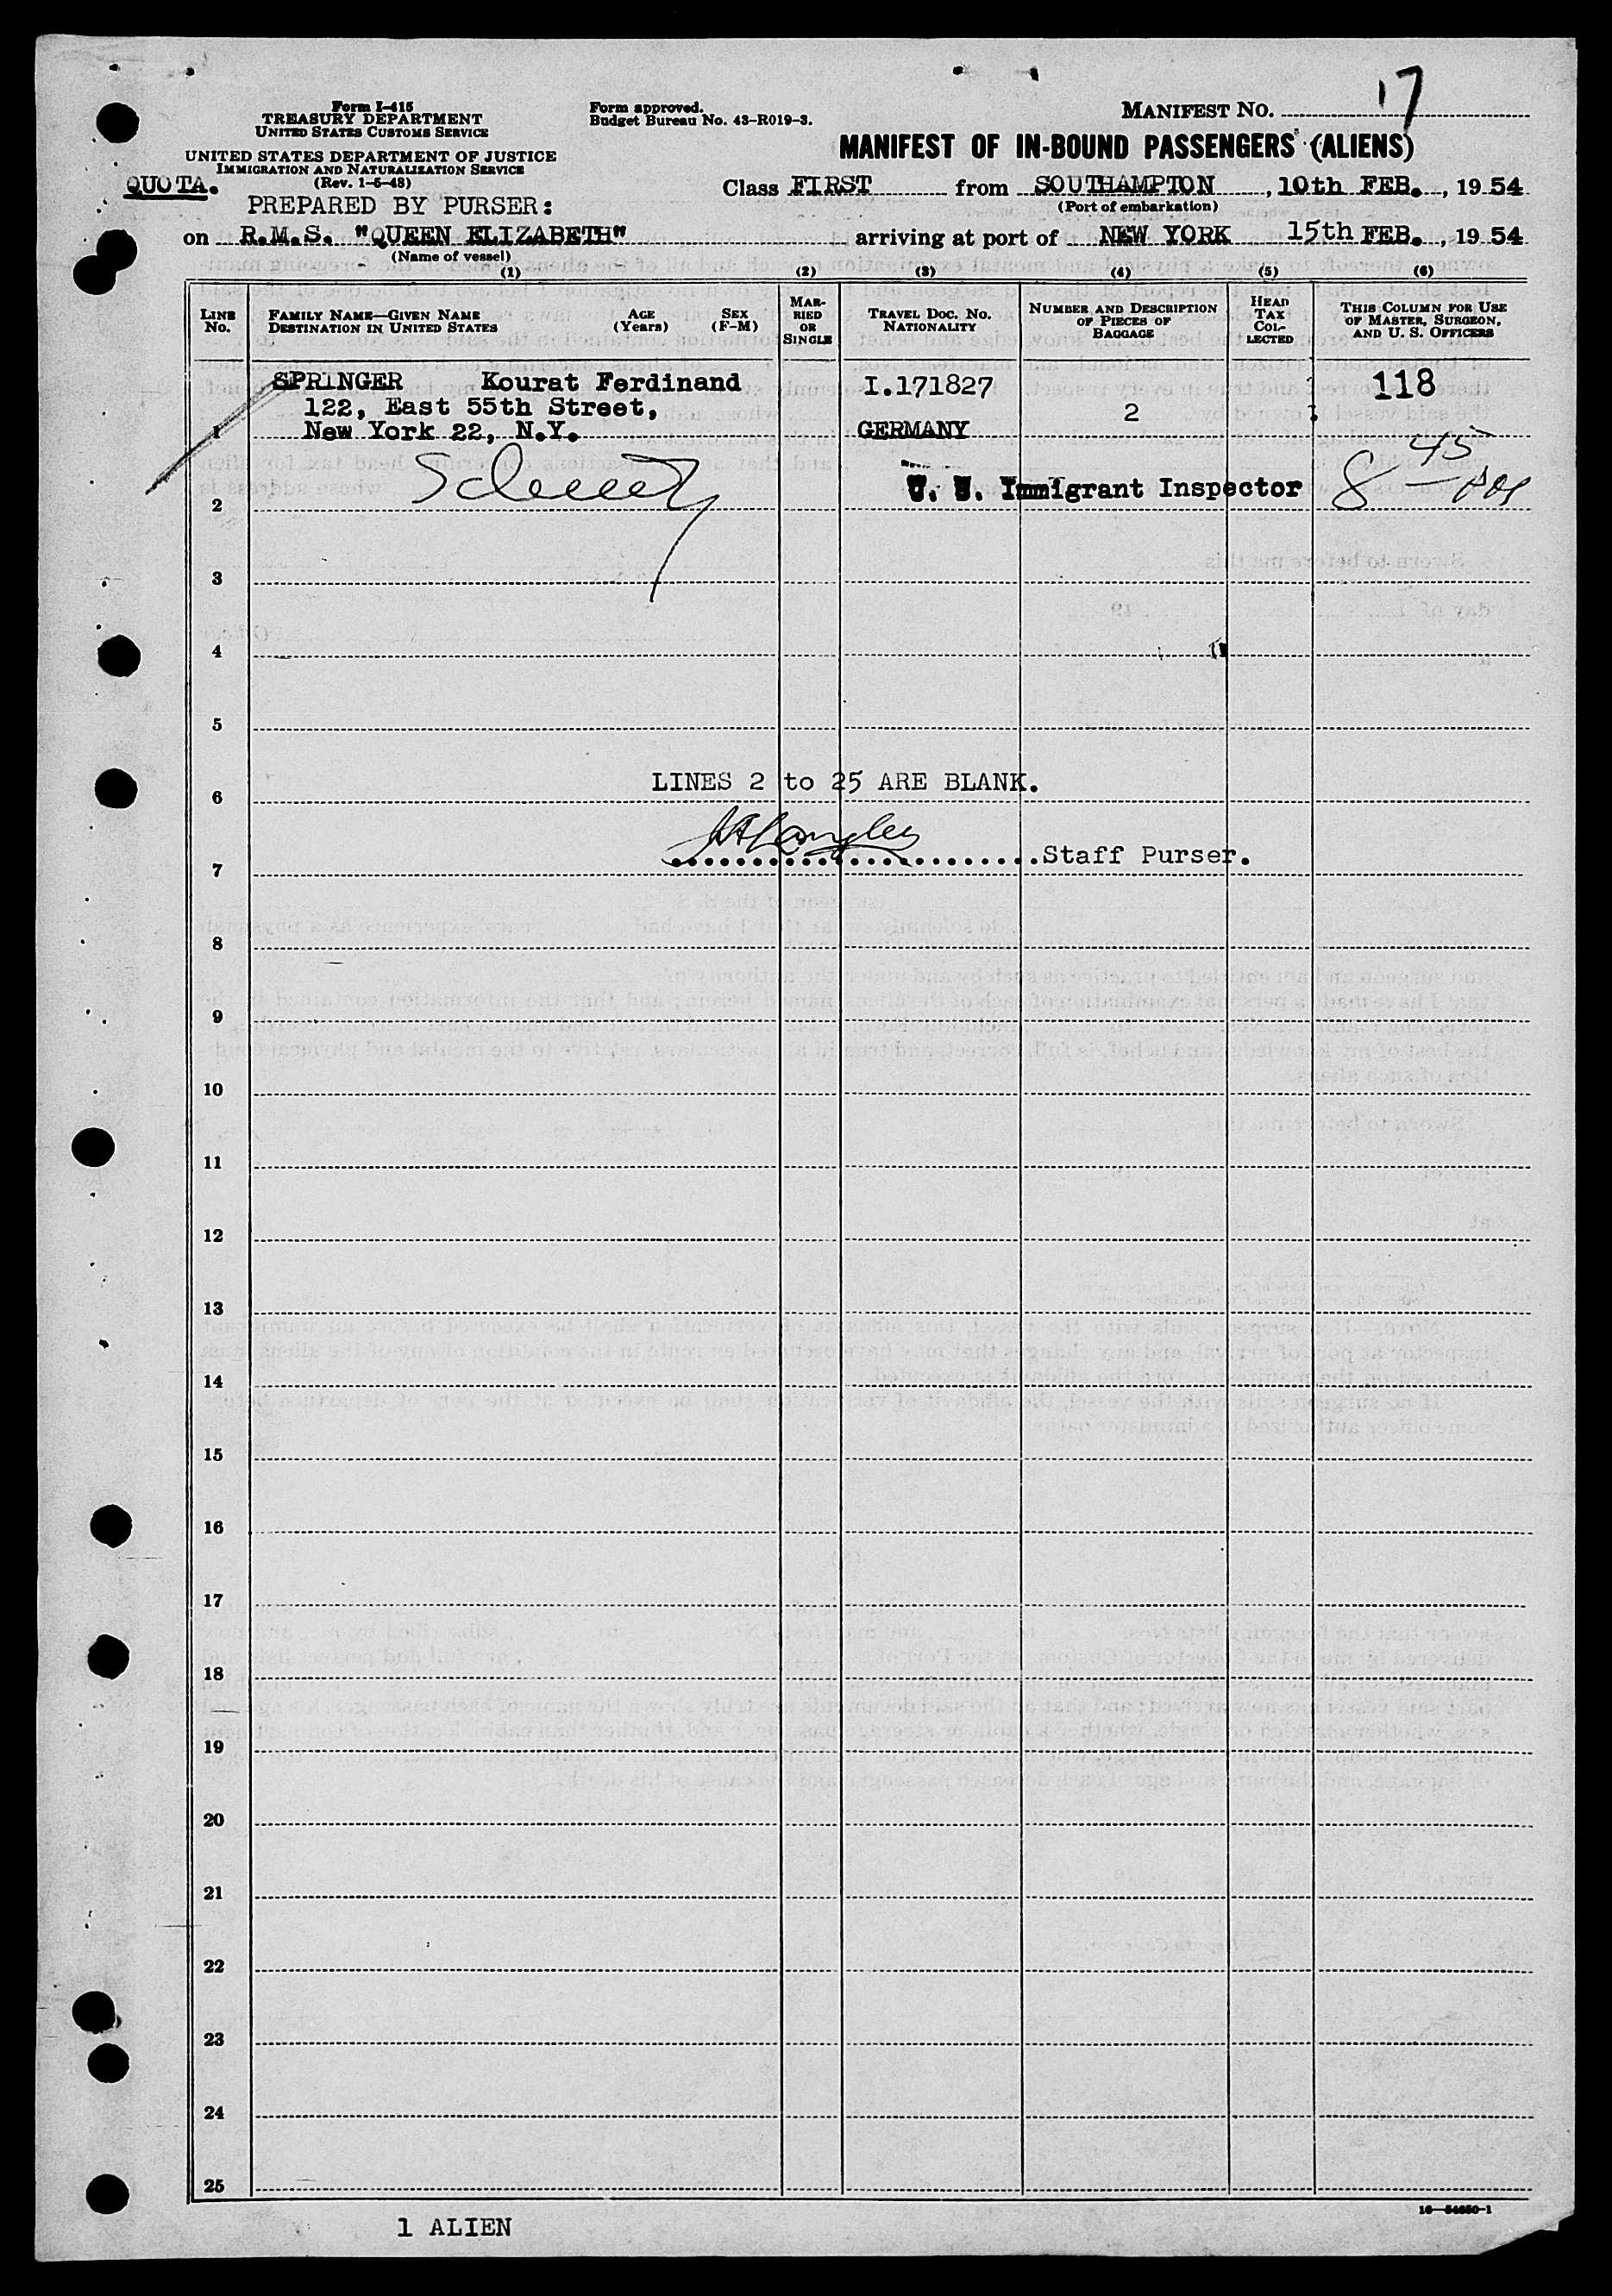 Form I-415
TREASURY DEPARTMENT
UNITED STATES CUSTOMS SERVICE
UNITED STATES DEPARTMENT OF JUSTICE
IMMIGRATION AND NATURALIZATION SERVICE
(Rev. 1-5-48)
Form approved.
Budget Bureau No. 43-R019-3.
MANIFEST NO. 17
MANIFEST OF IN-BOUND PASSENGERS (ALIENS)
QUOTA.
PREPARED BY PURSER:
Class FIRST from SOUTHAMPTON, 10th FEB., 1954
(Port of embarkation)
on R.M.S. "QUEEN ELIZABETH" arriving at port of NEW YORK 15th FEB., 1954
(Name of vessel)
(1) (2) (3) (4) (5) (6)
LINE No.
FAMILY NAME—GIVEN NAME
DESTINATION IN UNITED STATES
AGE (Years)
SEX (F-M)
MARRIED OR SINGLE
TRAVEL DOC. NO.
NATIONALITY
NUMBER AND DESCRIPTION OF PIECES OF BAGGAGE
HEAD TAX COLLECTED
THIS COLUMN FOR USE OF MASTER, SURGEON, AND U. S. OFFICERS
SPRINGER Kourat Ferdinand I.171827 118
122, East 55th Street, 2
1 New York 22, N.Y. GERMANY
2 U. S. Immigrant Inspector 8-45
3
4
5
LINES 2 to 25 ARE BLANK.
6
Staff Purser.
7
8
9
10
11
12
13
14
15
16
17
18
19
20
21
22
23
24
25
1 ALIEN